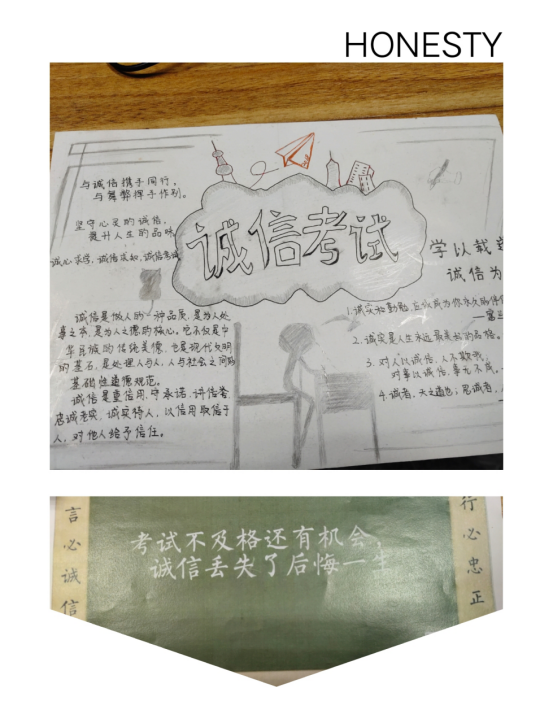 HONESTY
与诚信携手同行，
与舞弊挥手作别。
坚守心灵的诚信，
提升人生的品味
诚心求学，诚信求知，诚信考试
诚信考试
诚信是做人的一种品质，是为人处
事之本，是为人之德的核心。它不仅是中
华民族的传统美德，也是现代文明
的基石，是处理人与人，人与社会之间的
基础性道德规范。
诚信是重信用、守承诺、讲信誉
忠诚老实、诚实待人，以信用取信于
人，对他人给予信任。
学以载道
诚信为
1.诚实和勤勉，应该成为你永久的伴侣
2.诚实是人生永远最美好的品格。
3.对人以诚信，人不欺我；
对事以诚信，事无不成。
4.诚者，天之道也；思诚者，人
言必诚信
考试不及格还有机会，
诚信丢失了后悔一生
行必忠正